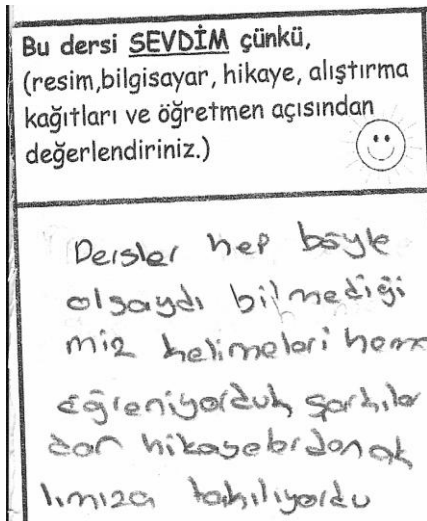 Bu dersi SEVDİM çünkü,
(resim,bilgisayar, hikaye, alıştırma
kağıtları ve öğretmen açısından
değerlendiriniz.)
Dersler hep böyle
olsaydı bilmediği
miz kelimeleri hem
öğreniyorduk şarkılar
dan hikayelerdan ak
lımıza takılıyordu